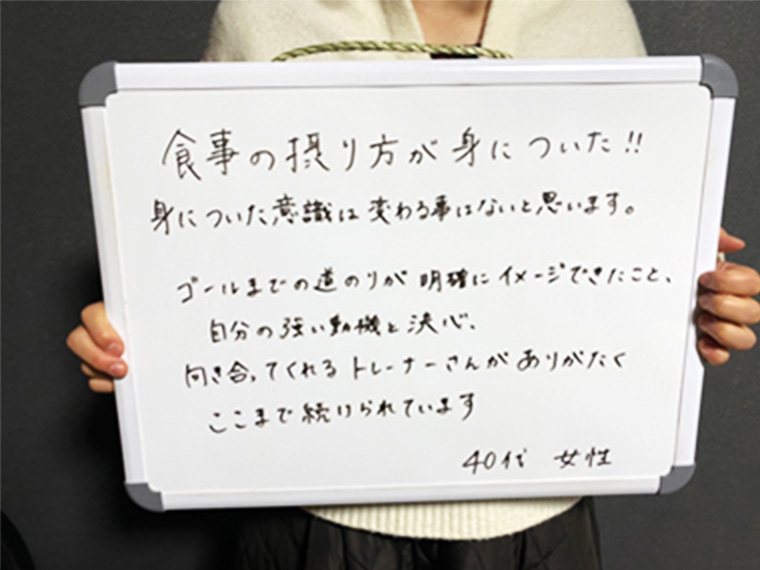 食事の摂り方が身についた!!
身についた意識は変わる事はないと思います。
ゴールまでの道のりが明確にイメージできたこと、
自分の強い動機と決心、
向き合ってくれるトレーナーさんがありがたく
ここまで続けられています
40代 女性